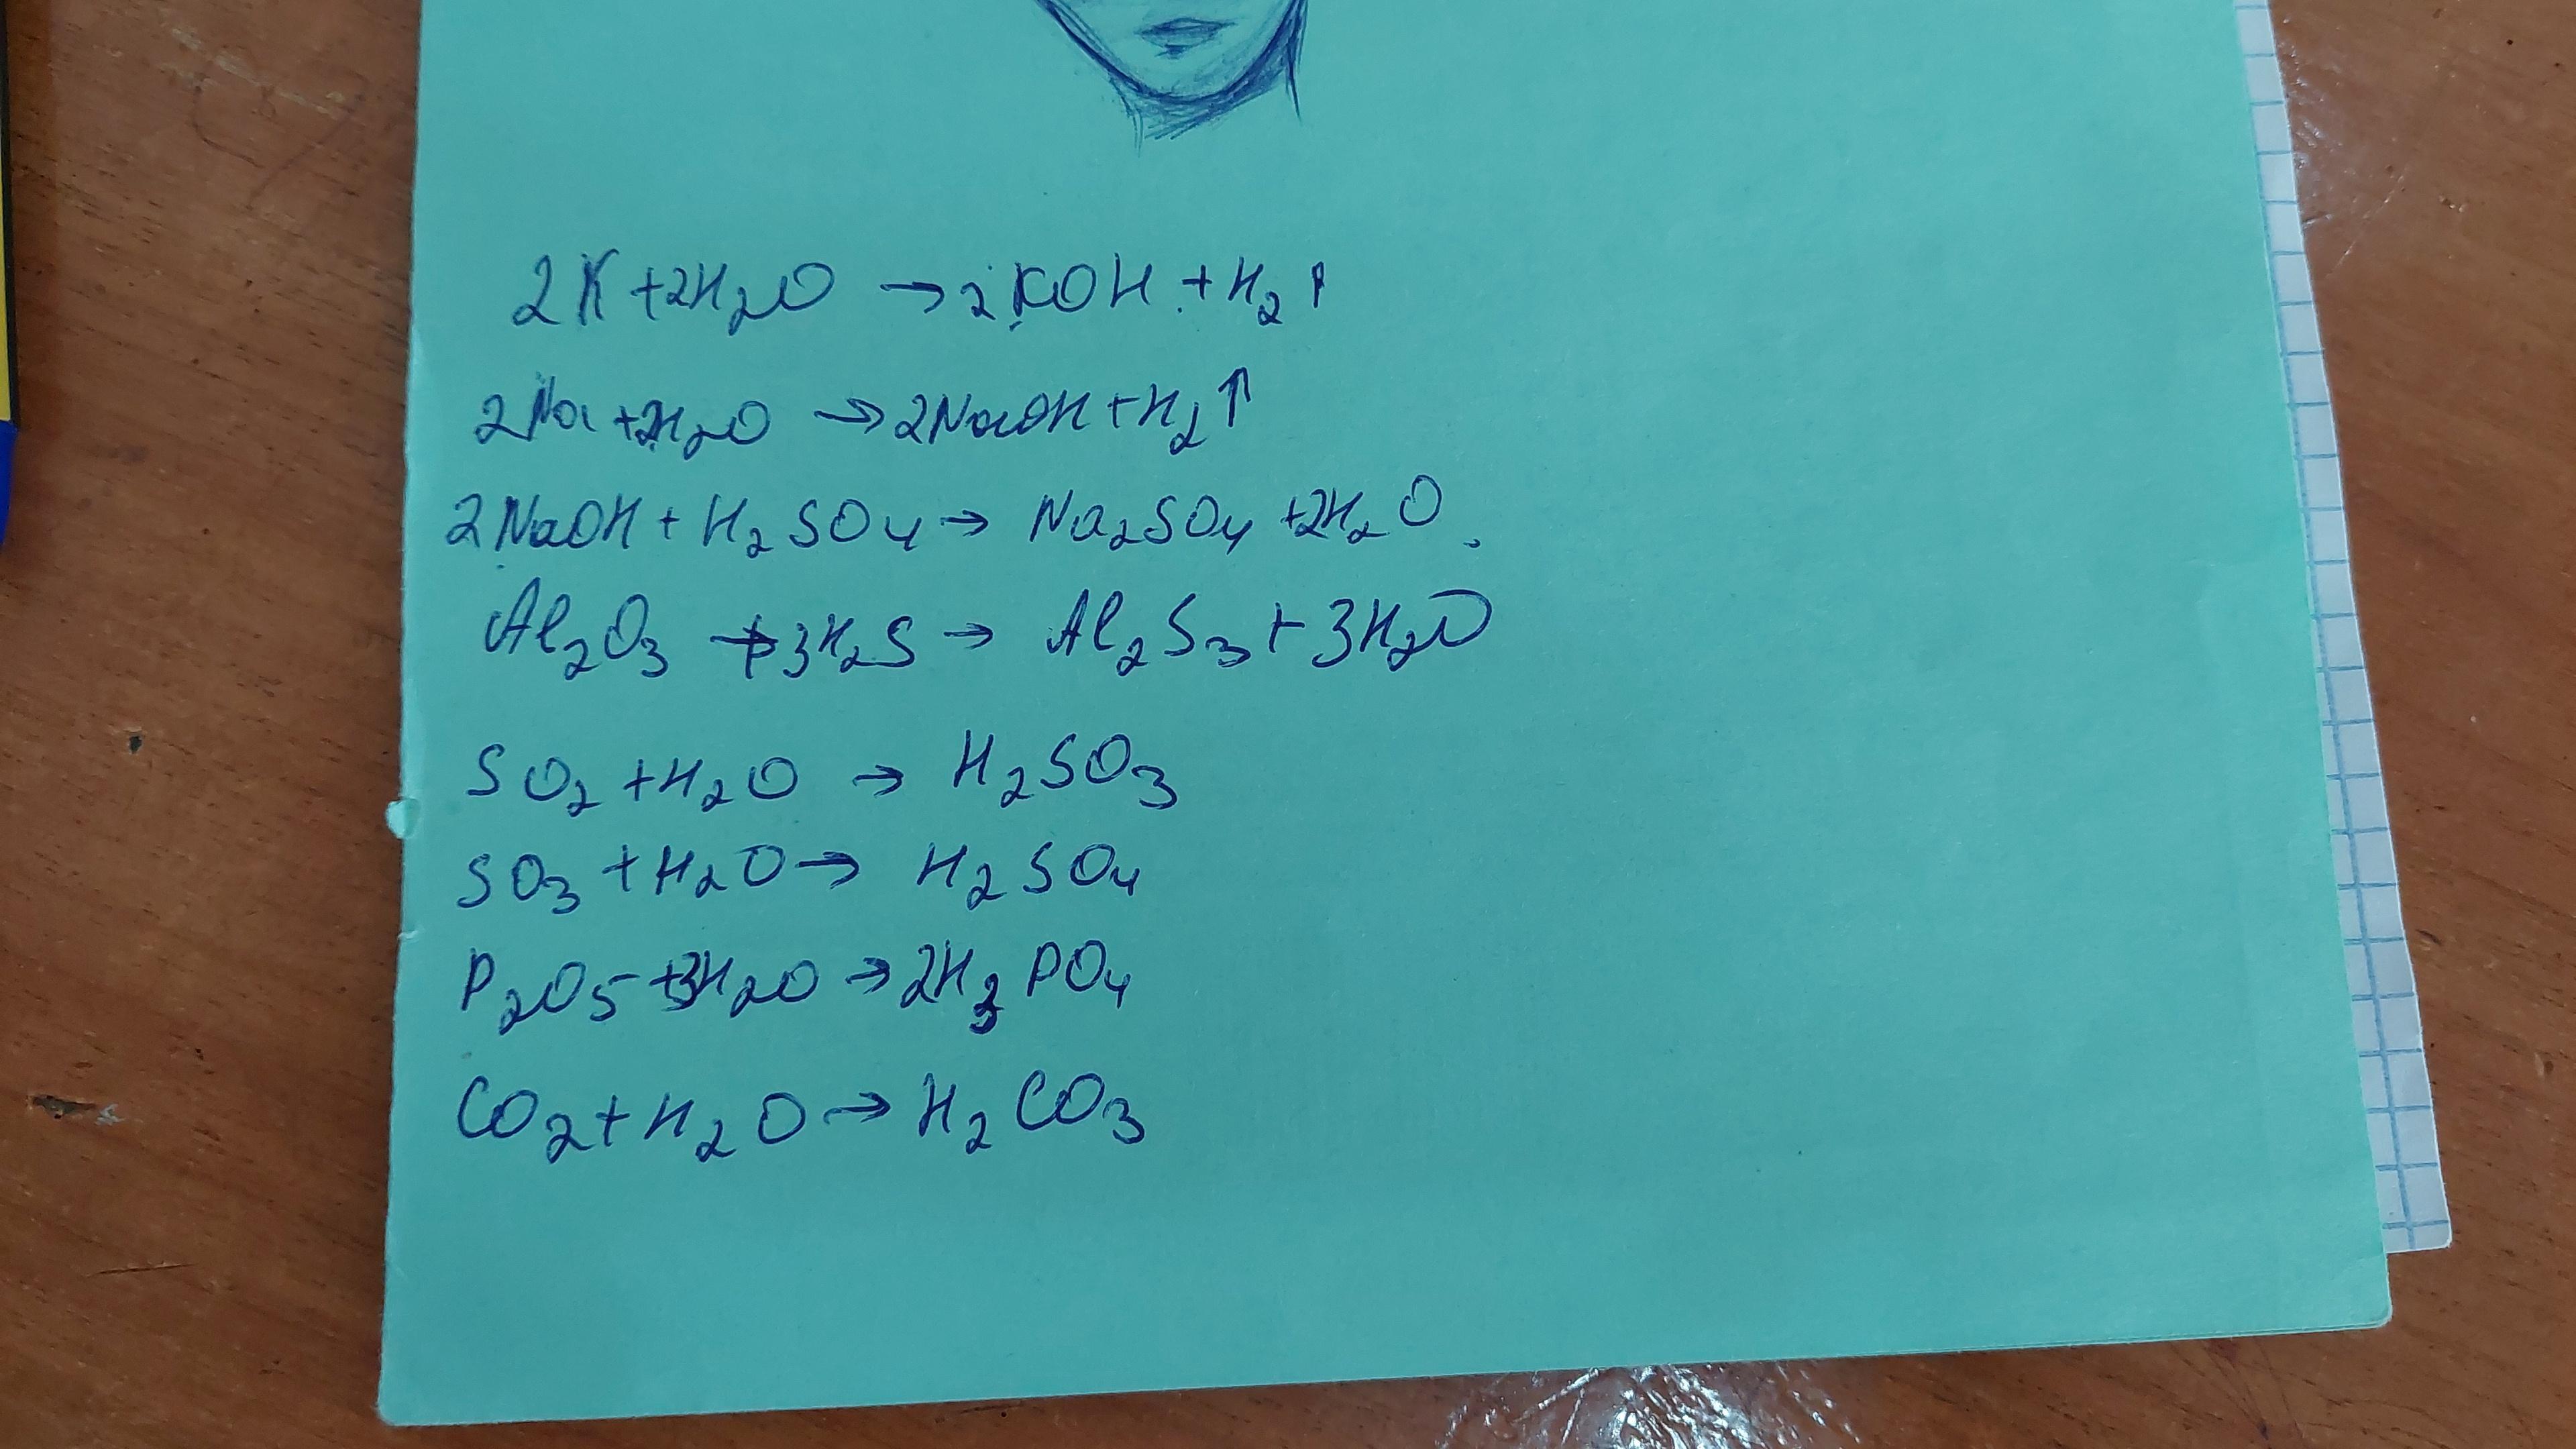 2K + 2H₂O → 2KOH + H₂↑
2Na + 2H₂O → 2NaOH + H₂↑
2NaOH + H₂SO₄ → Na₂SO₄ + 2H₂O
Al₂O₃ + 3H₂S → Al₂S₃ + 3H₂O
SO₂ + H₂O → H₂SO₃
SO₃ + H₂O → H₂SO₄
P₂O₅ + 3H₂O → 2H₃PO₄
CO₂ + H₂O → H₂CO₃